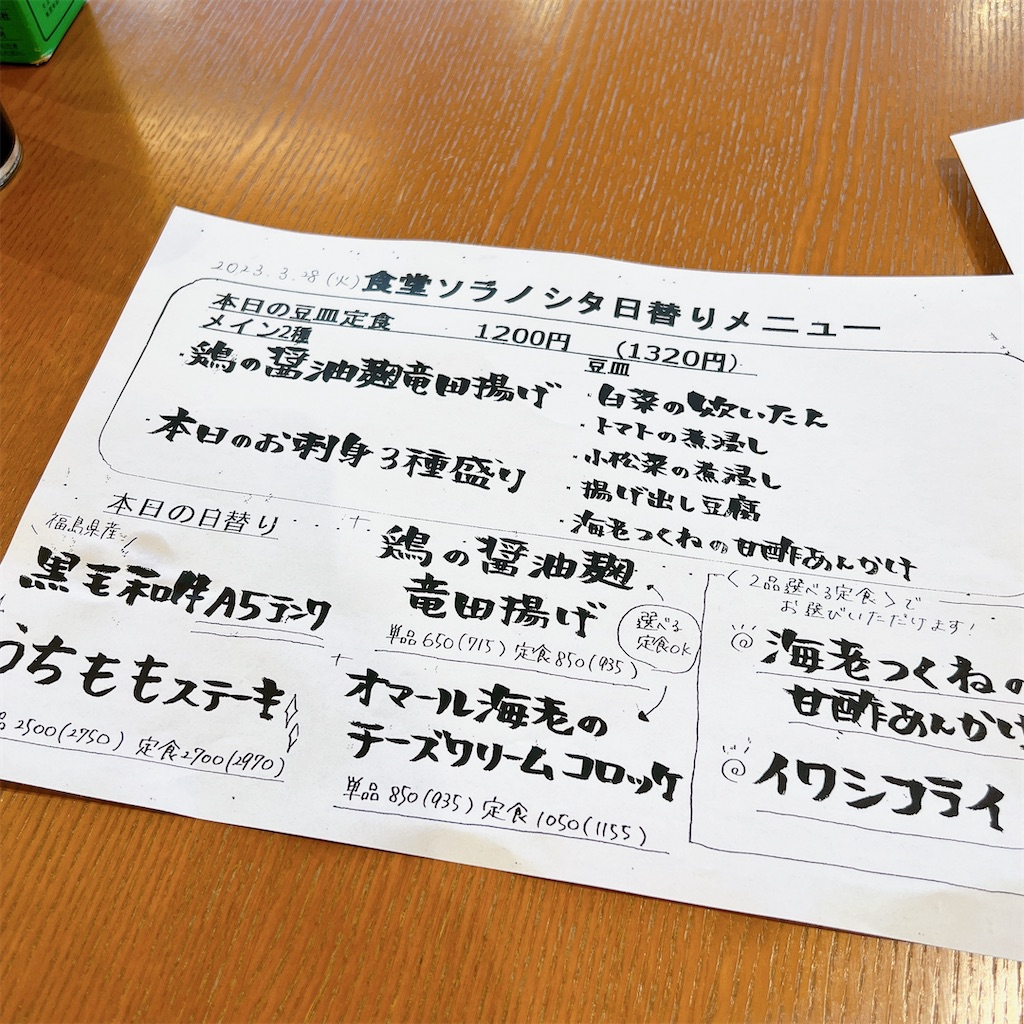 2023.3.28(火)食堂ソラノシタ日替りメニュー
本日の豆皿定食 1200円 (1320円)
メイン2種
・鶏の醤油麹竜田揚げ
・本日のお刺身3種盛り
豆皿
・白菜の炊いたん
・トマトの煮浸し
・小松菜の煮浸し
・揚げ出し豆腐
・海老つくねの甘酢あんかけ
本日の日替り
福島県産
黒毛和牛A5ランク
うちももステーキ
品2500(2750) 定食2700(2970)
鶏の醤油麹
竜田揚げ
単品650(715) 定食850(935)
選べる
定食OK
オマール海老の
チーズクリームコロッケ
単品850(935) 定食1050(1155)
〈2品選べる定食〉で
お選びいただけます!
海老つくねの
甘酢あんかけ
イワシフライ